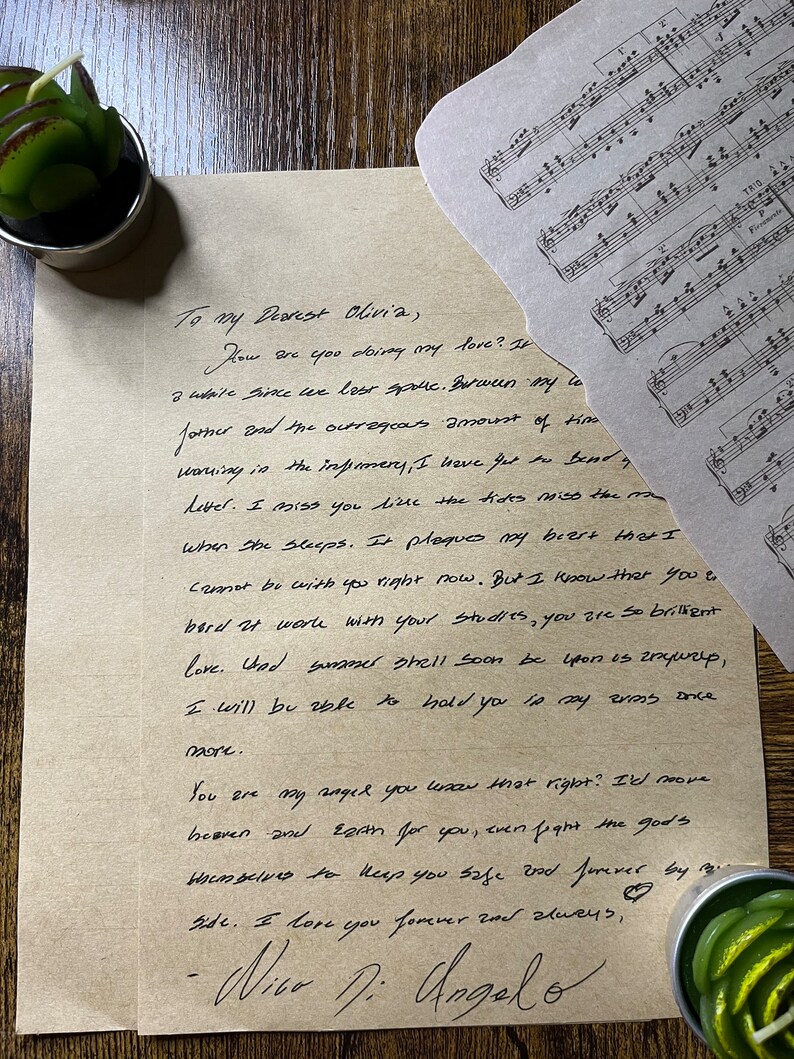 To my Dearest Olivia,
How are you doing my love? It
a while since we last spoke. Between my
father and the outrageous amount of
working in the infirmery, I have yet to Send
letter. I miss you like the tides miss the
when she sleeps. It plagues my heart that I
cannot be with you right now. But I know that you
hard at work with your studies, you are so brilliant
love. And summer shall soon be upon us anyways,
I will be able to hold you in my arms once
more.
You are my angel you know that right? I'd move
heaven and Earth for you, even fight the gods
themselves to keep you safe and forever by my
side. I love you forever and always,
- Nico Di Angelo
1º
2º
2º
TRIO
P
Fieramente
2º